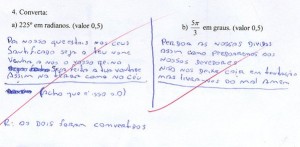 4. Converta:
a) 225° em radianos. (valor 0,5)
Pai nosso que estais nos céus
Santificado seja o teu nome
venha a nós o vosso reino
seja feita a tua vontade
Assim na terra como no céu
(acho que é isso o)
b) 5π/3 em graus. (valor 0,5)
Perdoa as nossas dividas
assim como perdoamos aos
nossos devedores
não nos deixe cair em tentação
mas livra-nos do mal Amem
R: os dois foram convertidos